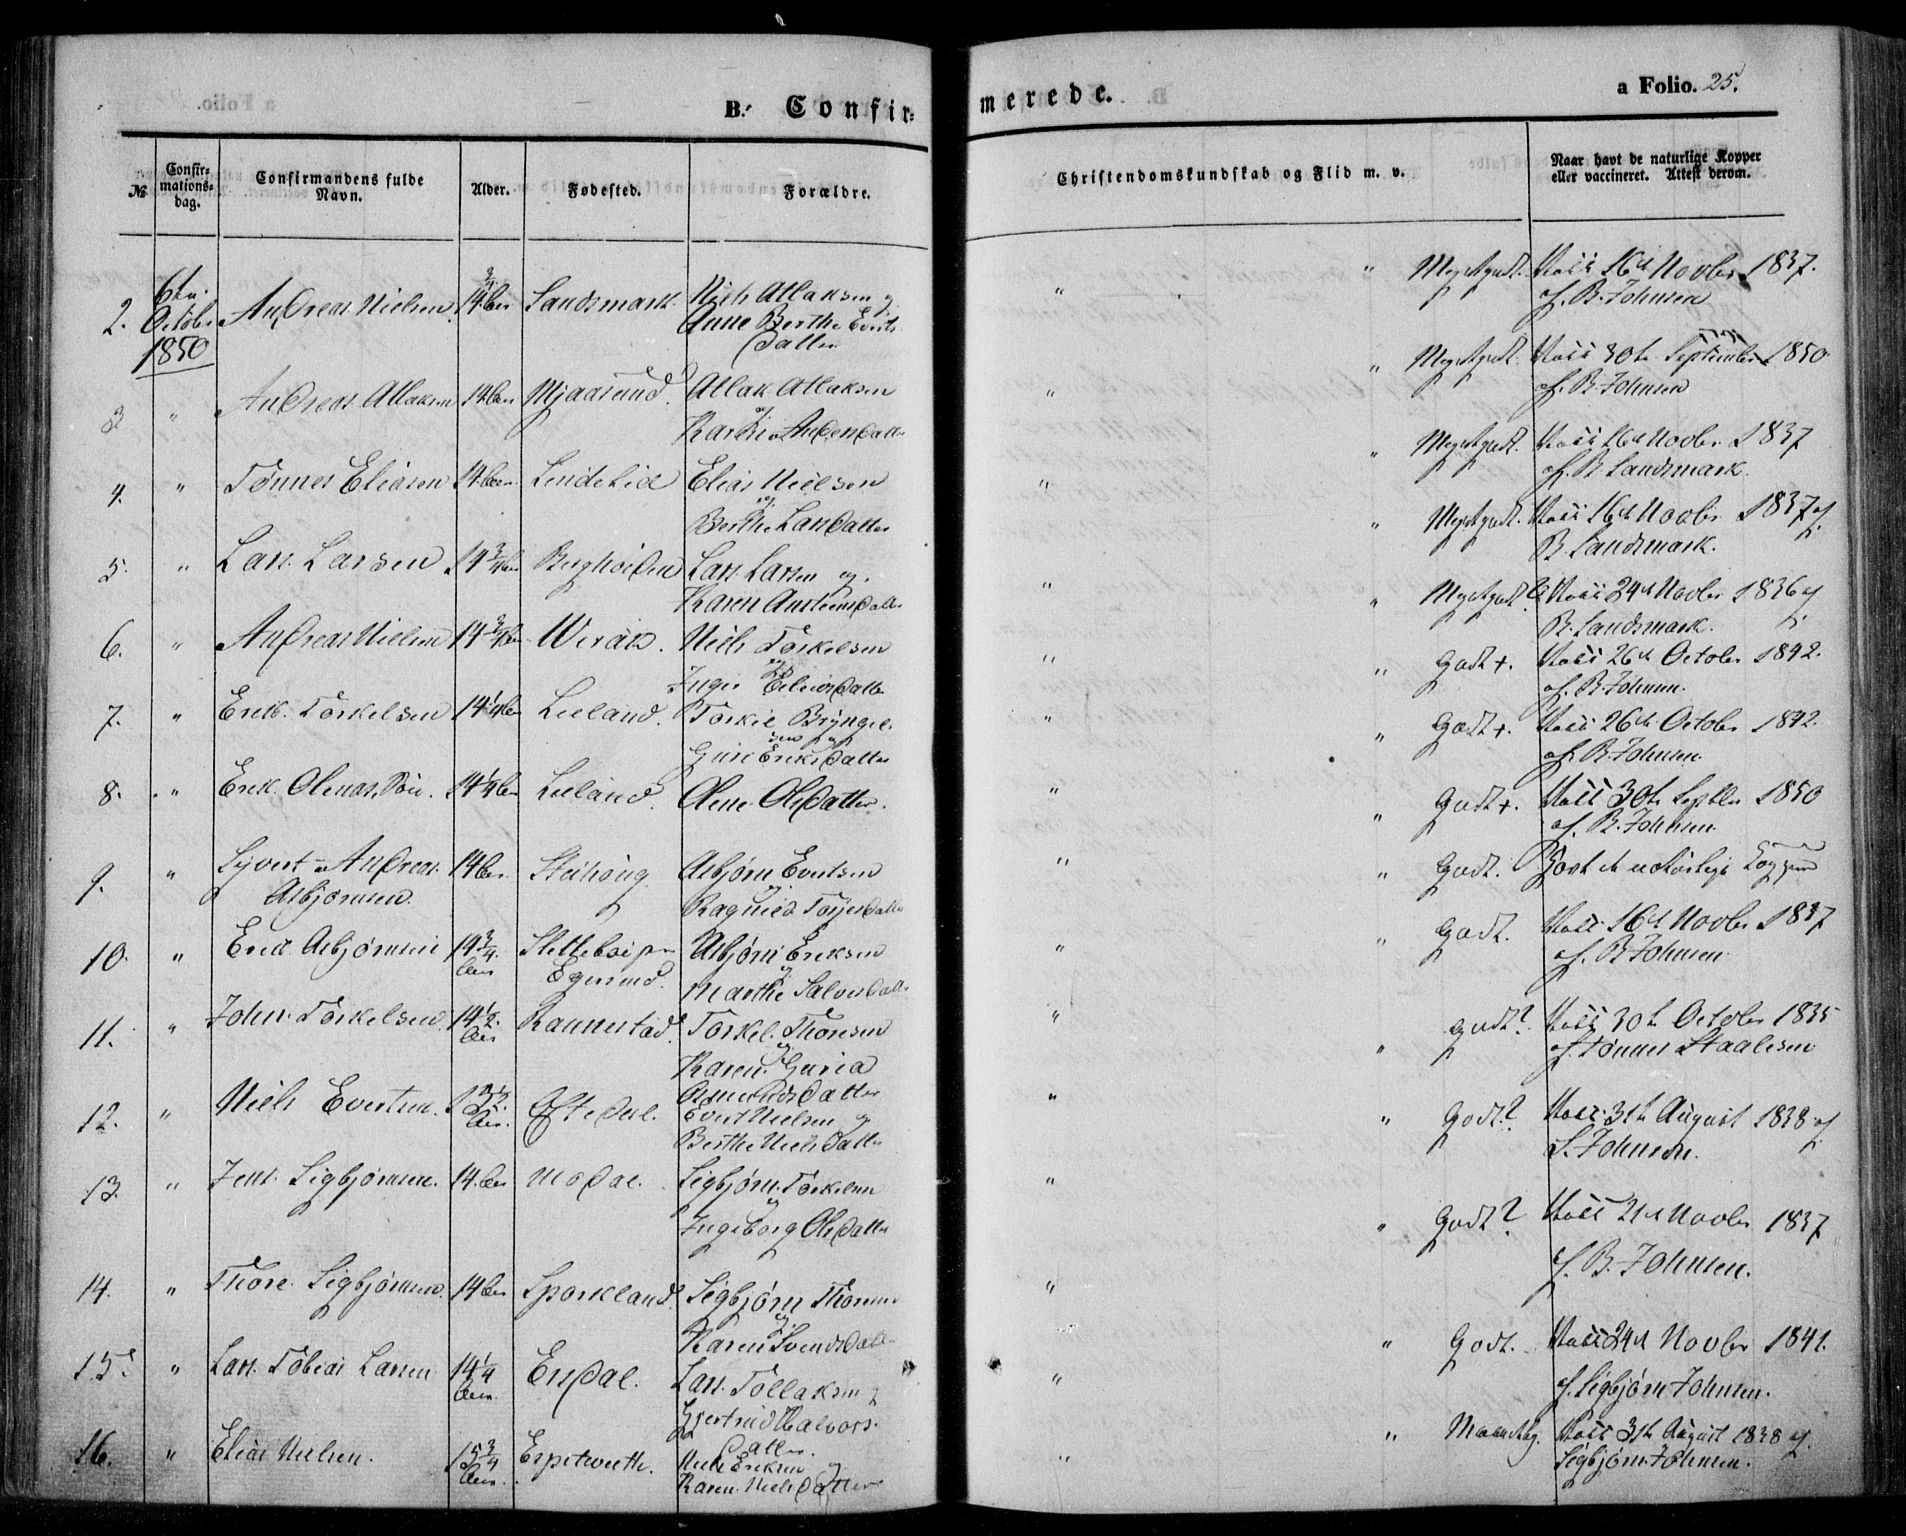 B. Confir-
merede.
a Folio. 25.
№
Confir-
mations-
dag.
Confirmandens fulde
Navn.
Alder.
Fødested.
Forældre.
Christendomskundskab og Flid m. v.
Naar havt de naturlige Kopper
eller vaccineret. Attest derom.
2. 6te October 1850 Andreas Nielsen 14 3/4 Aar Landsmark. Niels Atlaksen og Anne Berthe Everts Datter " " Meget godt. Vacc. 16d Novbr 1837. af B. Johnsen
3 " Andreas Atlaksen 14 Aar Mjaasund. Atlak Atlaksen og Karen Datter " " Meget godt. Vacc. 30te September 1850. af B. Johnsen
4. " Tønnes Eliasen 14 Aar Lindelid Elias Nielsen og Berthe Lars Datter " " Meget godt. Vacc. 16d Novbr 1837 af B. Landsmark.
5. " Lars Larsen 14 3/4 Aar Bergheiden Lars Larsen og Karen Austens Datter " " Meget godt. Vacc. 16d Novbr 1837 af B. Landsmark.
6. " Andreas Nielsen 14 3/4 Aar Wirak. Niels Torkelsen og Inger Elias Datter " " Meget godt. Vacc. 24d Novbr 1836 af B. Landsmark.
7. " Erik Torkelsen 14 1/4 Aar Leeland. Torkel Bryngel- sen og Guri Eriks Datter " " Godt +. Vacc. 26d October 1842. af B. Johnsen.
8. " Erik Olenas Søn. 14 1/4 Aar Leeland. Olene Ols Datter. " " Godt +. Vacc. 26d October 1842. af B. Johnsen.
9. " Syvert Andreas Asbjørnsen. 14 Aar Asbjørn Evertsen og Ragnild Torjes Datter " " Godt +. Vacc. 30te Septbr 1850 af B. Johnsen
10. " Erik Asbjørnsen 14 3/4 Aar Egersund. Asbjørn Eriksen og Marthe Salves Datter " " Godt. Havt de naturlige Kopper
11. " John Torkelsen 14 1/2 Aar Rannestad. Torkel Thorsen og Karen Guria Asmunds Datter " " Godt. Vacc. 16d Novbr 1837 af B. Johnsen.
12. " Niels Evertsen. Aar. Eftedal. Evert Nielsen og Berthe Niels Datter " " Godt? Vacc 30te October 1835 af Tønnes Staalesen
13. " Jens Sigbjørnsen. 14 Aar Modal. Sigbjørn Torkelsen og Ingeborg Ols Datter " " Godt? Vacc. 31te August 1838 af S. Johnsen.
14. " Thore Sigbjørnsen 14 Aar Sporkland. Sigbjørn Thorsen og Karen Svends Datter " " Godt? Vacc 21d Novbr 1837 af B. Johnsen.
15. " Lars Tobias Larsen 14 1/4 Aar. Erdal. Lars Tollaksen og Gjertrud Halvors- Datter. " " Godt. Vacc 24d Novbr 1841. af Sigbjørn Johnsen.
16. " Elias Nielsen. 15 3/4 Aar. Espetveith. Niels Eriksen og Karen Niels Datter " " Vacc 31te August 1838 af Sigbjørn Johnsen.